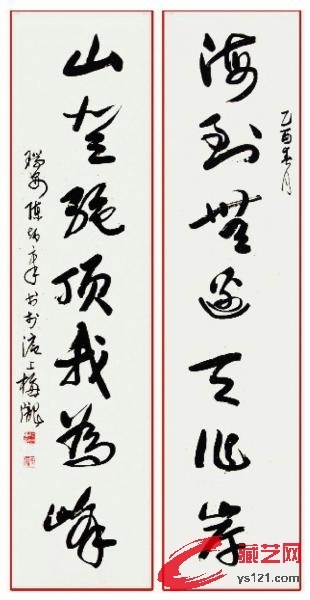 乙酉春月
海到无边天作岸
山登绝顶我为峰
瑞安陈
书于沪上梅陇
藏艺网
ys121.com